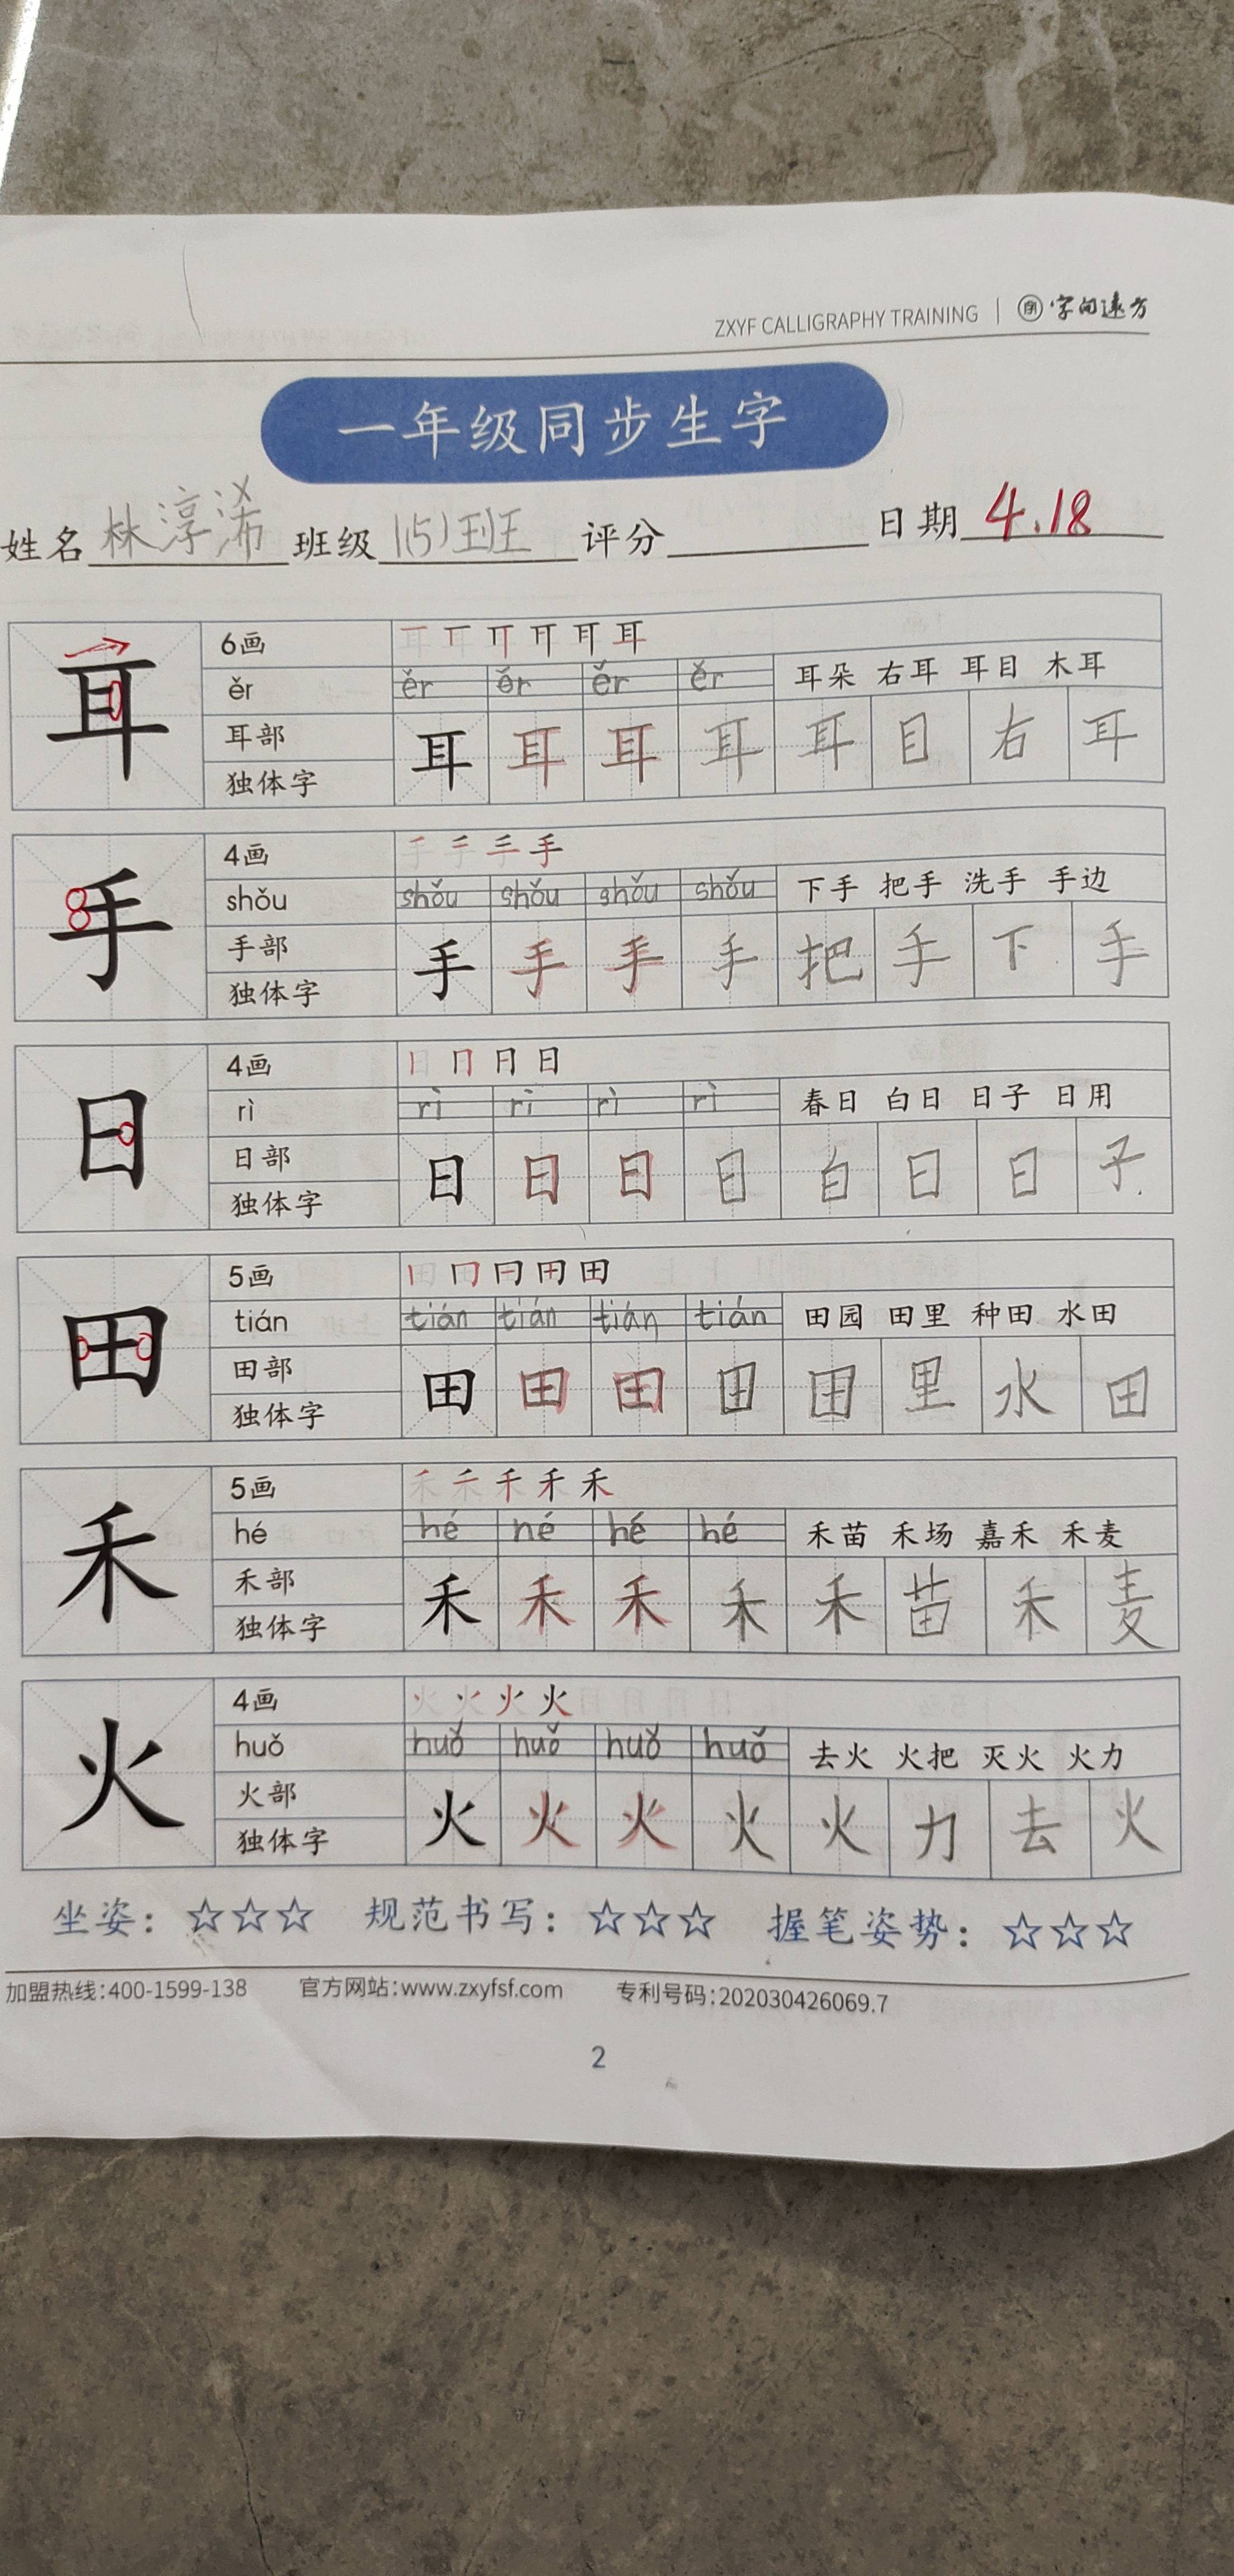 ZXYF CALLIGRAPHY TRAINING | 字间远方
一年级同步生字
姓名 林淳浠 班级 1(5)班 评分 日期 4.18
耳 6画 耳
ěr ěr ěr ěr ěr 耳朵 右耳 耳目 木耳
耳部 耳 耳 耳 耳 耳 目 右 耳
独体字
手 4画 手
shǒu shǒu shǒu shǒu shǒu 下手 把手 洗手 手边
手部 手 手 手 手 把 手 下 手
独体字
日 4画 日
rì rì rì rì rì 春日 白日 日子 日用
日部 日 日 日 日 白 日 日 子
独体字
田 5画 田
tián tián tián tián tián 田园 田里 种田 水田
田部 田 田 田 田 田 里 水 田
独体字
禾 5画 禾
hé hé hé hé hé 禾苗 禾场 嘉禾 禾麦
禾部 禾 禾 禾 禾 禾 苗 禾 麦
独体字
火 4画 火
huǒ huǒ huǒ huǒ huǒ 去火 火把 灭火 火力
火部 火 火 火 火 火 力 去 火
独体字
坐姿：☆☆☆ 规范书写：☆☆☆ 握笔姿势：☆☆☆
加盟热线：400-1599-138 官方网站：www.zxyfsf.com 专利号码：202030426069.7
2